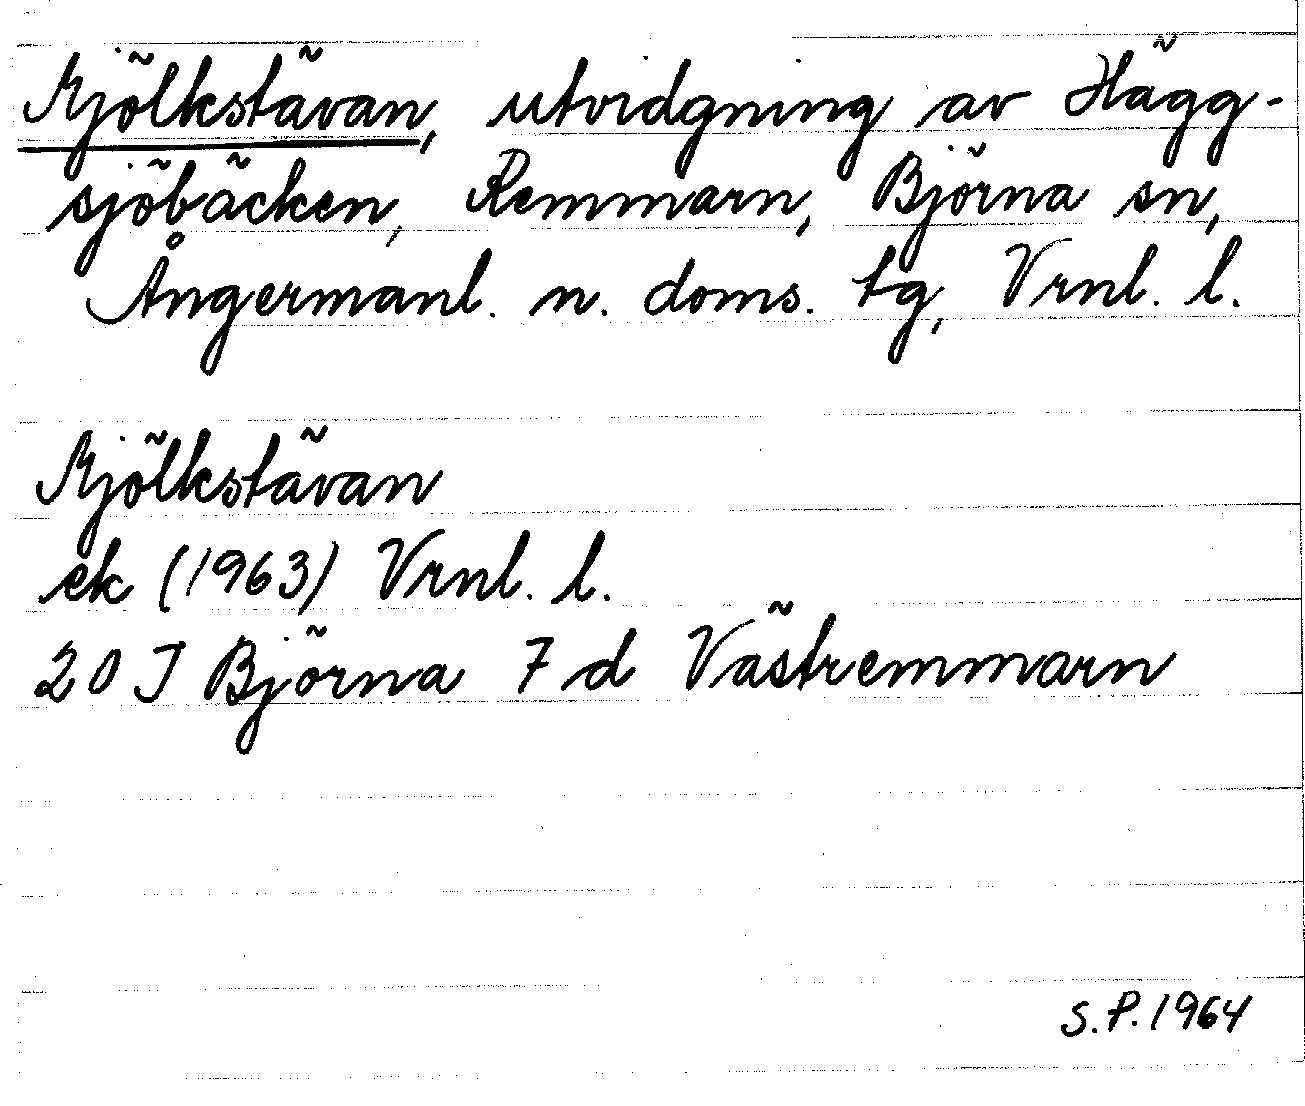 Mjölkstävan, utvidgning av Hägg-
sjöbäcken, Remmarn, Björna sn,
Ångermanl. n. doms. tg, Vrnl. l.
Mjölkstävan
ek (1963) Vrnl. l.
20 J Björna 7 d Västremmarn
S.P. 1964